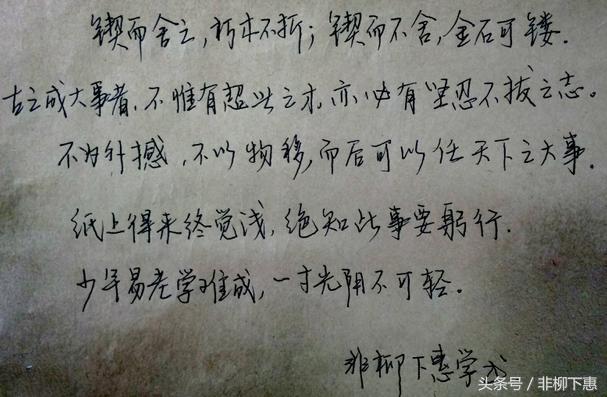 锲而舍之，朽木不折；锲而不舍，金石可镂．
古之成大事者，不惟有超世之才，亦必有坚忍不拔之志。
不为外撼，不以物移，而后可以任天下之大事．
纸上得来终觉浅，绝知此事要躬行．
少年易老学难成，一寸光阴不可轻。
非柳下惠学书
头条号／非柳下惠